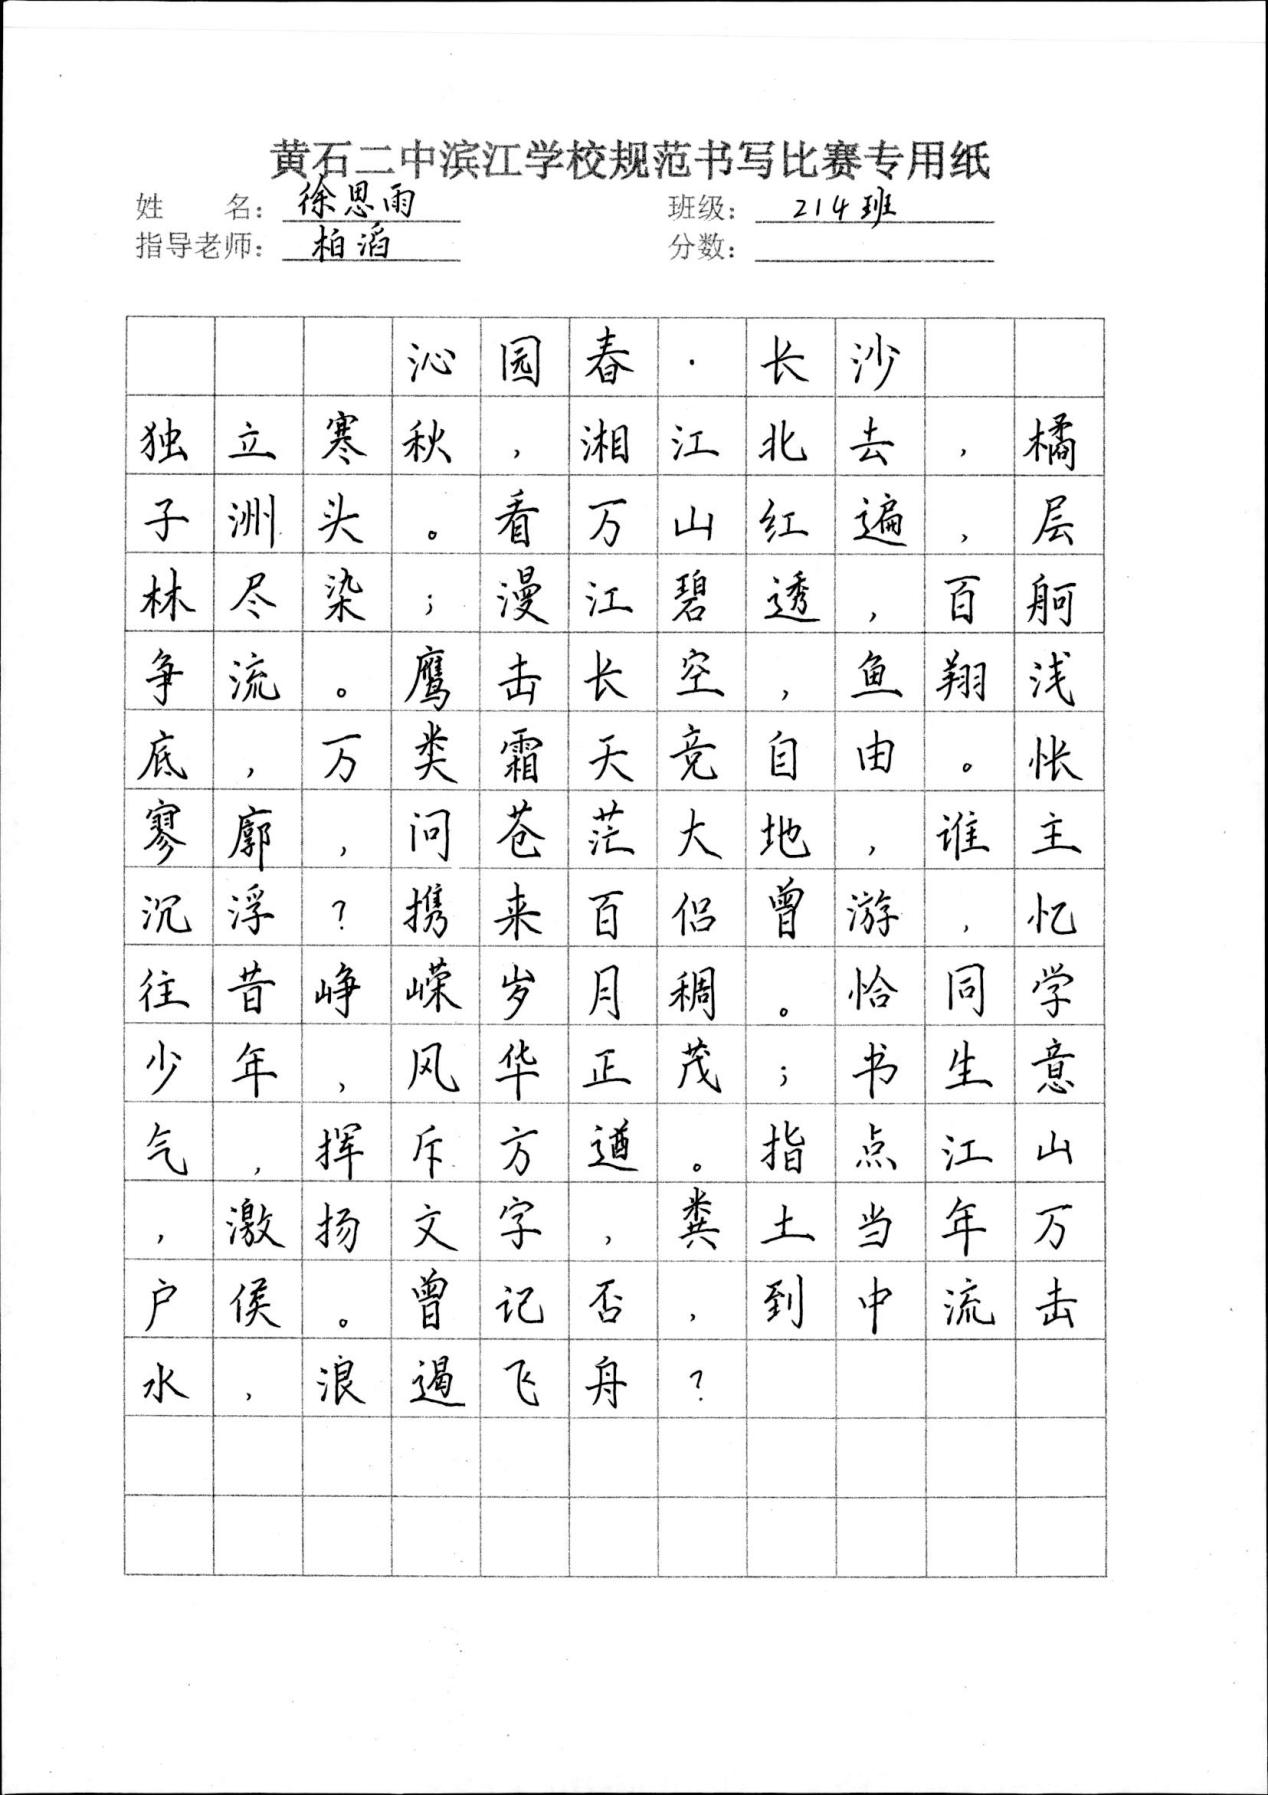 黄石二中滨江学校规范书写比赛专用纸
姓 名: 徐思雨 班级: 214班
指导老师: 柏滔 分数:
沁园春·长沙
独立寒秋，湘江北去，橘
子洲头。看万山红遍，层
林尽染；漫江碧透，百舸
争流。鹰击长空，鱼翔浅
底，万类霜天竞自由。怅
寥廓，问苍茫大地，谁主
沉浮？携来百侣曾游，忆
往昔峥嵘岁月稠。恰同学
少年，风华正茂；书生意
气，挥斥方遒。指点江山
，激扬文字，粪土当年万
户侯。曾记否，到中流击
水，浪遏飞舟？